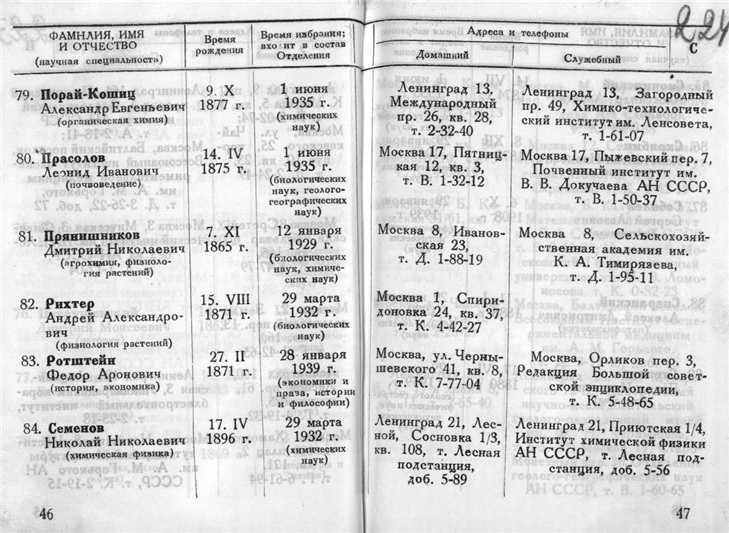 ФАМИЛИЯ, ИМЯ
И ОТЧЕСТВО
(научная специальность)
Время
рождения
Время избрания;
входит в состав
Отделения
79. Порай-Кошиц
Александр Евгеньевич
(органическая химия)
9. X
1877 г.
1 июня
1935 г.
(химических
наук)
80. Прасолов
Леонид Иванович
(почвоведение)
14. IV
1875 г.
1 июня
1935 г.
(биологических
наук, геолого-
географических
наук)
81. Прянишников
Дмитрий Николаевич
(агрохимия, физиоло-
гия растений)
7. XI
1865 г.
12 января
1929 г.
(биологических
наук, химиче-
ских наук)
82. Рихтер
Андрей Александро-
вич
(физиология растений)
15. VIII
1871 г.
29 марта
1932 г.
(биологических
наук)
83. Ротштейн
Федор Аронович
(история, экономика)
27. II
1871 г.
28 января
1939 г.
(экономики и
права, истории
и философии)
84. Семенов
Николай Николаевич
(химическая физика)
17. IV
1896 г.
29 марта
1932 г.
(химических
наук)
46
224
С
Адреса и телефоны
Домашний
Служебный
Ленинград 13,
Международный
пр. 26, кв. 28,
т. 2-32-40
Ленинград 13, Загородный
пр. 49, Химико-технологиче-
ский институт им. Ленсовета,
т. 1-61-07
Москва 17, Пятниц-
кая 12, кв. 3,
т. В. 1-32-12
Москва 17, Пыжевский пер. 7,
Почвенный институт им.
В. В. Докучаева АН СССР,
т. В. 1-50-37
Москва 8, Иванов-
ская 23,
т. Д. 1-88-19
Москва 8, Сельскохозяй-
ственная академия им.
К. А. Тимирязева,
т. Д. 1-95-11
Москва 1, Спири-
доновка 24, кв. 37,
т. К. 4-42-27
Москва, ул. Черны-
шевского 41, кв. 8,
т. К. 7-77-04
Москва, Орликов пер. 3,
Редакция Большой совет-
ской энциклопедии,
т. К. 5-48-65
Ленинград 21, Лес-
ной, Сосновка 1/3,
кв. 108, т. Лесная
подстанция,
доб. 5-89
Ленинград 21, Приютская 1/4,
Институт химической физики
АН СССР, т. Лесная под-
станция, доб. 5-56
47